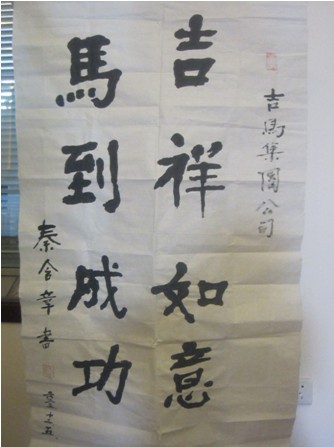 吉馬集團公司
吉祥如意
馬到成功
秦含章書